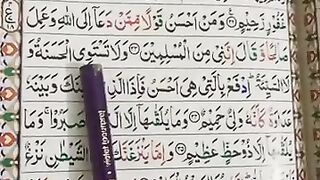 غَفُوْرٍ رَّحِيْمٍ ۝٣٢ وَمَنْ اَحْسَنُ قَوْلًا مِّمَّنْ دَعَاۤ اِلَى اللّٰهِ وَعَمِلَ
صَالِحًا وَّقَالَ اِنَّنِيْ مِنَ الْمُسْلِمِيْنَ ۝٣٣ وَلَا تَسْتَوِى الْحَسَنَةُ وَ
لَا السَّيِّئَةُ ؕ اِدْفَعْ بِالَّتِيْ هِيَ اَحْسَنُ فَاِذَا الَّذِيْ بَيْنَكَ وَبَيْنَهٗ
عَدَاوَةٌ كَاَنَّهٗ وَلِيٌّ حَمِيْمٌ ۝٣٤ وَمَا يُلَقّٰىهَاۤ اِلَّا الَّذِيْنَ صَبَرُوْا ۚ وَمَا
يُلَقّٰىهَاۤ اِلَّا ذُوْ حَظٍّ عَظِيْمٍ ۝٣٥ وَاِمَّا يَنْزَغَنَّكَ مِنَ الشَّيْطٰنِ نَزْغٌ